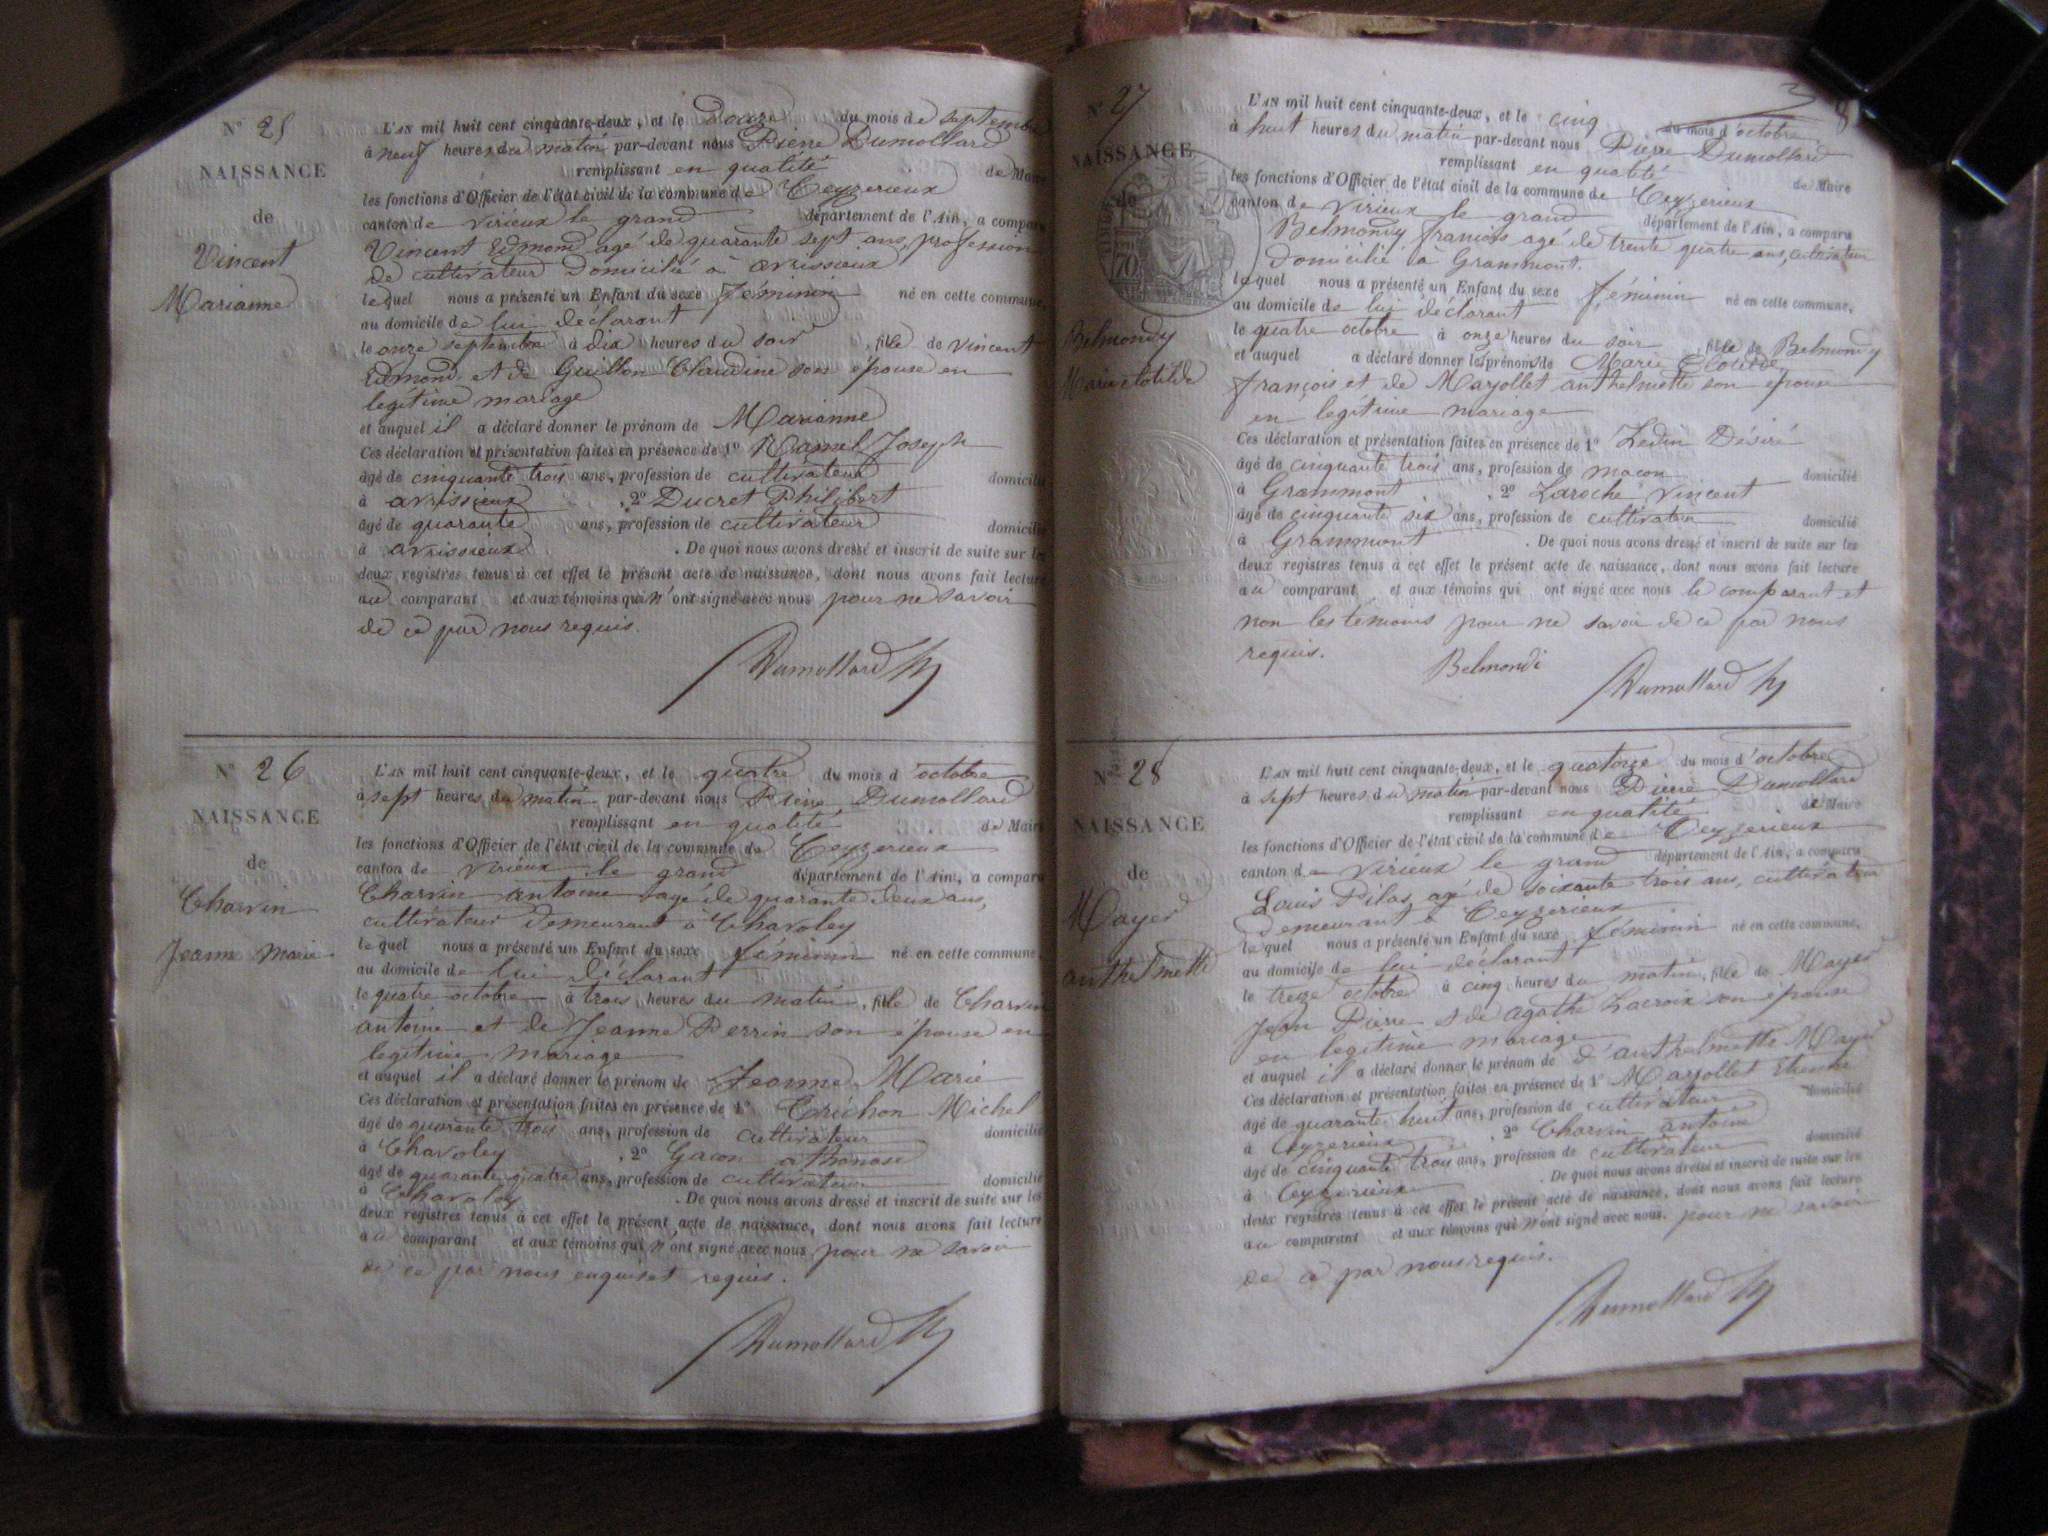 N° 25
NAISSANCE
de
Vincent
Marianne
L'AN mil huit cent cinquante-deux, et le Douze du mois de septembre
à neuf heures du matin par-devant nous Pierre Dumollard
remplissant en qualité de Maire
les fonctions d'Officier de l'état civil de la commune de Ceyzerieux
canton de virieux le grand département de l'Ain, a comparu
Vincent Edmond agé de quarante sept ans, profession
de cultivateur Domicilié à avrissieux
lequel nous a présenté un Enfant du sexe féminin né en cette commune,
au domicile de lui déclarant
le onze septembre à dix heures du soir, fille de vincent
Edmond et de Guillon Claudine son épouse en
legitime mariage
et auquel il a déclaré donner le prénom de Marianne
Ces déclaration et présentation faites en présence de 1° Ramel Joseph
âgé de cinquante trois ans, profession de cultivateur domicilié
à avrissieux, 2° Ducret Philibert
âgé de quarante ans, profession de cultivateur domicilié
à avrissieux. De quoi nous avons dressé et inscrit de suite sur les
deux registres tenus à cet effet le présent acte de naissance, dont nous avons fait lecture
au comparant et aux témoins qui n'ont signé avec nous pour ne savoir
de ce par nous requis.
Dumollard
N° 26
NAISSANCE
de
Charvin
Jeanne Marie
L'AN mil huit cent cinquante-deux, et le quatre du mois d'octobre
à sept heures du matin par-devant nous Pierre Dumollard
remplissant en qualité de Maire
les fonctions d'Officier de l'état civil de la commune de Ceyzerieux
canton de virieux le grand département de l'Ain, a comparu
Charvin antoine agé de quarante deux ans,
cultivateur demeurant à Chavoley
lequel nous a présenté un Enfant du sexe féminin né en cette commune,
au domicile de lui déclarant
le quatre octobre à trois heures du matin, fille de Charvin
antoine et de Jeanne Perrin son épouse en
legitime mariage
et auquel il a déclaré donner le prénom de Jeanne Marie
Ces déclaration et présentation faites en présence de 1° Michel
âgé de quarante trois ans, profession de cultivateur domicilié
à Chavoley, 2° Gacon athanase
âgé de quarante quatre ans, profession de cultivateur domicilié
à Chavoley. De quoi nous avons dressé et inscrit de suite sur les
deux registres tenus à cet effet le présent acte de naissance, dont nous avons fait lecture
au comparant et aux témoins qui n'ont signé avec nous pour ne savoir
de ce par nous enquis et requis.
Dumollard
8
N° 27
NAISSANCE
de
Belmondy
Marie clotilde
L'AN mil huit cent cinquante-deux, et le cinq du mois d'octobre
à huit heures du matin par-devant nous Pierre Dumollard
remplissant en qualité de Maire
les fonctions d'Officier de l'état civil de la commune de Ceyzerieux
canton de virieux le grand département de l'Ain, a comparu
Belmondy françois agé de trente quatre ans, cultivateur
domicilié à Grammont.
lequel nous a présenté un Enfant du sexe féminin né en cette commune,
au domicile de lui déclarant
le quatre octobre à onze heures du soir, fille de Belmondy
et auquel a déclaré donner les prénoms de Marie Clotilde
françois et de Marjollet anthelmette son épouse
en legitime mariage
Ces déclaration et présentation faites en présence de 1° Désiré
âgé de cinquante trois ans, profession de macon domicilié
à Grammont, 2° Laroche vincent
âgé de cinquante six ans, profession de cultivateur domicilié
à Grammont. De quoi nous avons dressé et inscrit de suite sur les
deux registres tenus à cet effet le présent acte de naissance, dont nous avons fait lecture
au comparant et aux témoins qui ont signé avec nous le comparant et
non les témoins pour ne savoir de ce par nous
requis.
Belmondi Dumollard
N° 28
NAISSANCE
de
Mayer
anthelmette
L'AN mil huit cent cinquante-deux, et le quatorze du mois d'octobre
à sept heures du matin par-devant nous Pierre Dumollard
remplissant en qualité de Maire
les fonctions d'Officier de l'état civil de la commune de Ceyzerieux
canton de virieux le grand département de l'Ain, a comparu
Louis Pilaz agé de soixante trois ans, cultivateur
demeurant à Ceyzerieux
lequel nous a présenté un Enfant du sexe féminin né en cette commune,
au domicile de lui déclarant
le treize octobre à cinq heures du matin, fille de Mayer
Jean Pierre et de agathe Lacroix son épouse
en legitime mariage
et auquel il a déclaré donner le prénom de d'anthelmette Mayer
Ces déclaration et présentation faites en présence de 1° Marjollet Etienne
âgé de quarante huit ans, profession de cultivateur domicilié
à Ceyzerieux, 2° Charvin antoine
âgé de cinquante trois ans, profession de cultivateur domicilié
à Ceyzerieux. De quoi nous avons dressé et inscrit de suite sur les
deux registres tenus à cet effet le présent acte de naissance, dont nous avons fait lecture
au comparant et aux témoins qui n'ont signé avec nous. pour ne savoir
de ce par nous requis.
Dumollard